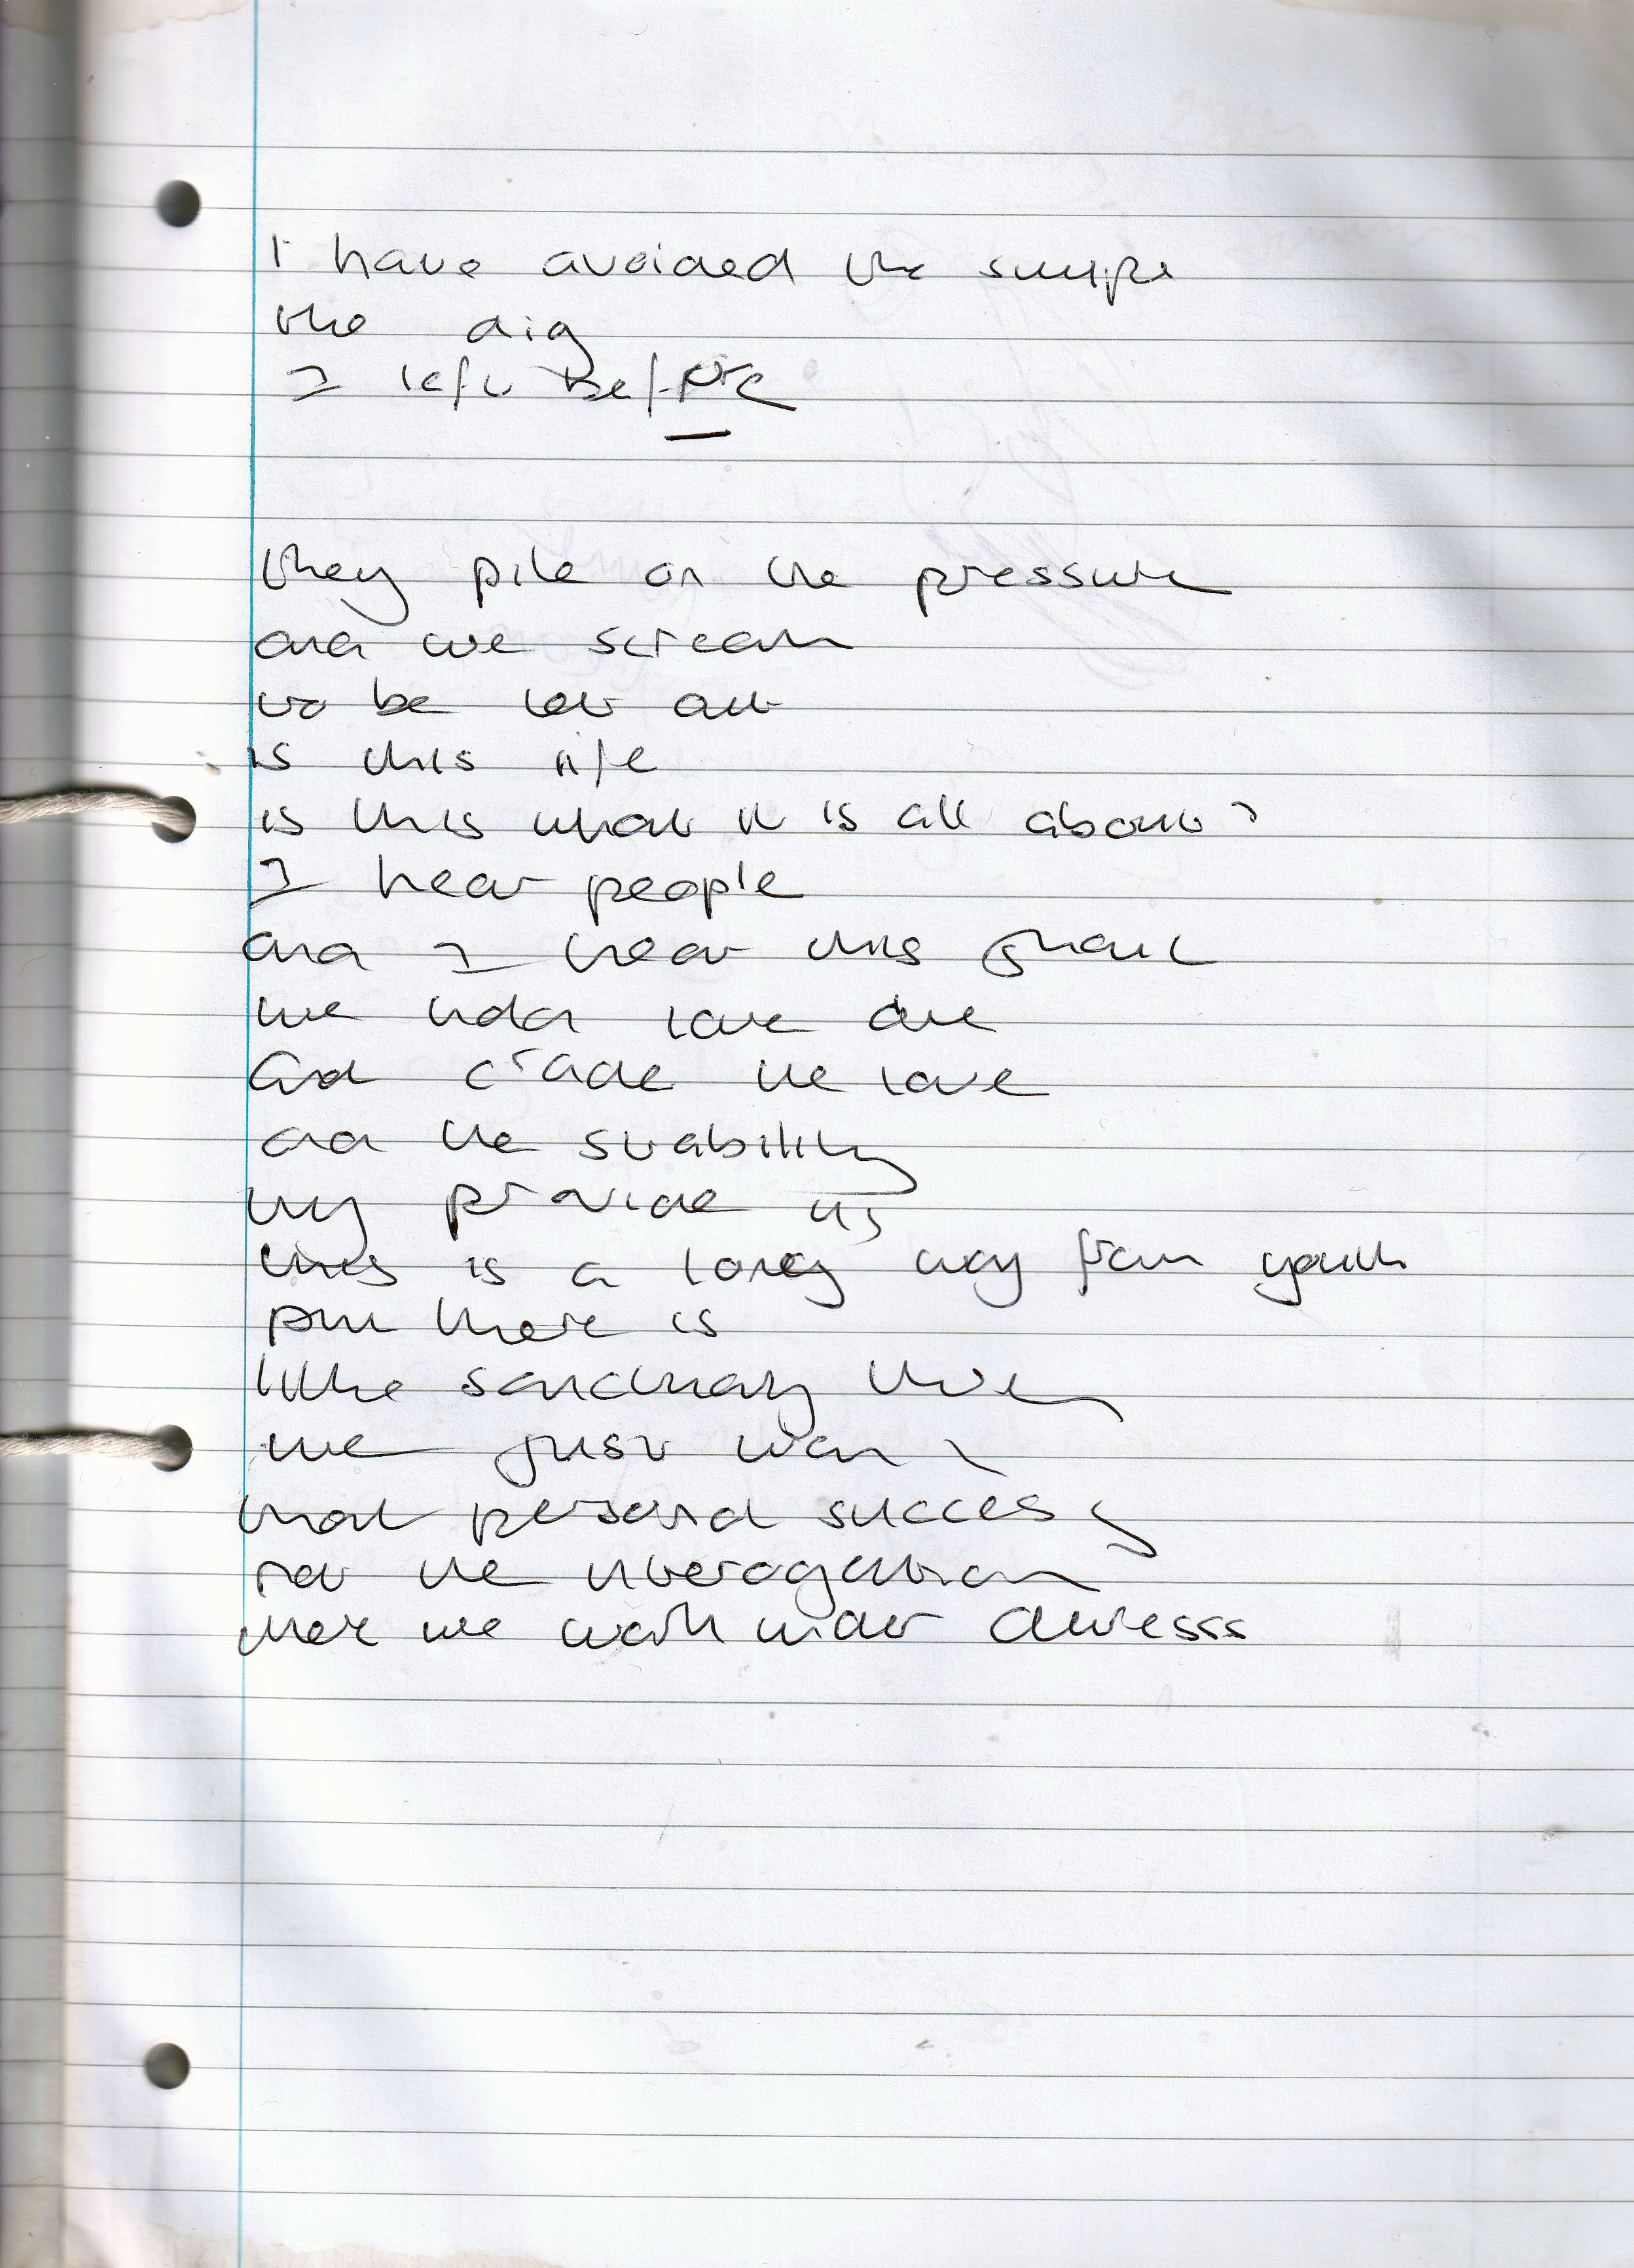 I have avoided the simple
the dig
I left before
they pile on the pressure
and we scream
to be let out
is this life
is this what it is all about?
I hear people
and I hear this
we hold love dear
and cradle the love
and the stability
they provide us
this is a long way from youth
there is
little sanctuary there
we just want
that personal success
not the interogation
we work under duresss